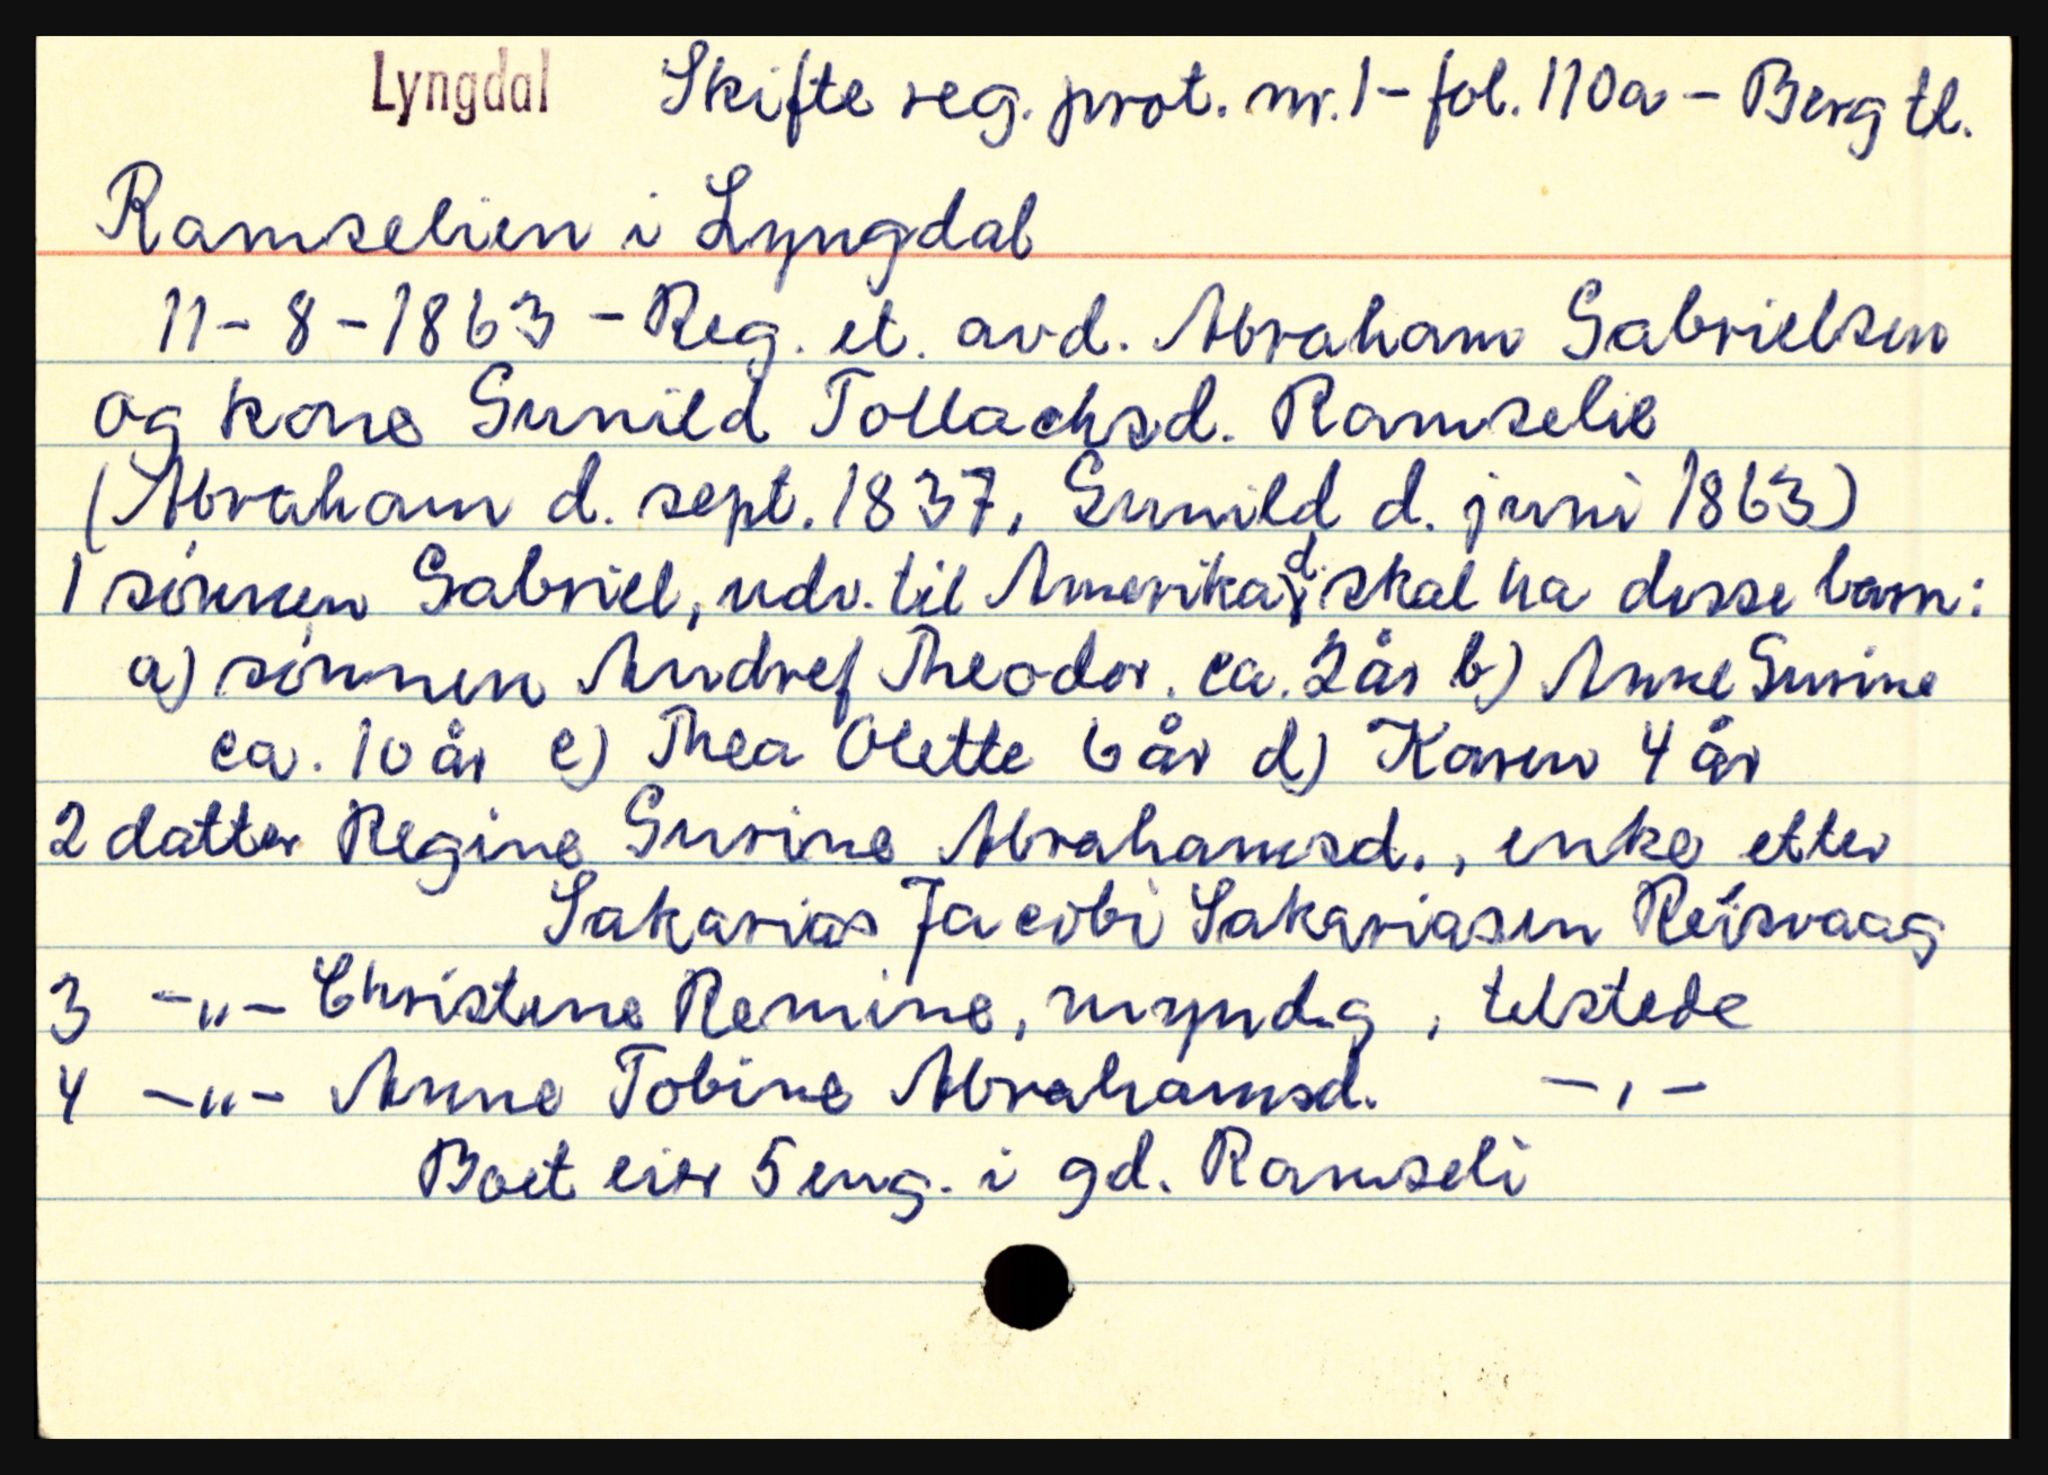 Lyngdal Skifte reg. prot. nr. 1 - fol. 110a - Berg tl.
Ramselien i Lyngdal
11 - 8 - 1863 - Reg. et. avd. Abraham Gabrielsen
og kone Gunild Tollachsd. Ramselie
(Abraham d. sept. 1837, Gunild d. juni 1863)
1 sønnen Gabriel, udv. til Amerika, d. skal ha disse barn:
a) sønnen Andref Theodor. ca. 2 år b) Anne Gurine
ca. 10 år c) Thea Olette 6 år d) Karen 4 år
2 datter Regine Gurine Abrahamsd., enke etter
Sakarias Jacobi Sakariasen Reisvaag
3 -"- Christene Remine, myndig, tilstede
4 -"- Anne Tobine Abrahamsd. - , -
Boet eier 5 eng. i gd. Ramseli